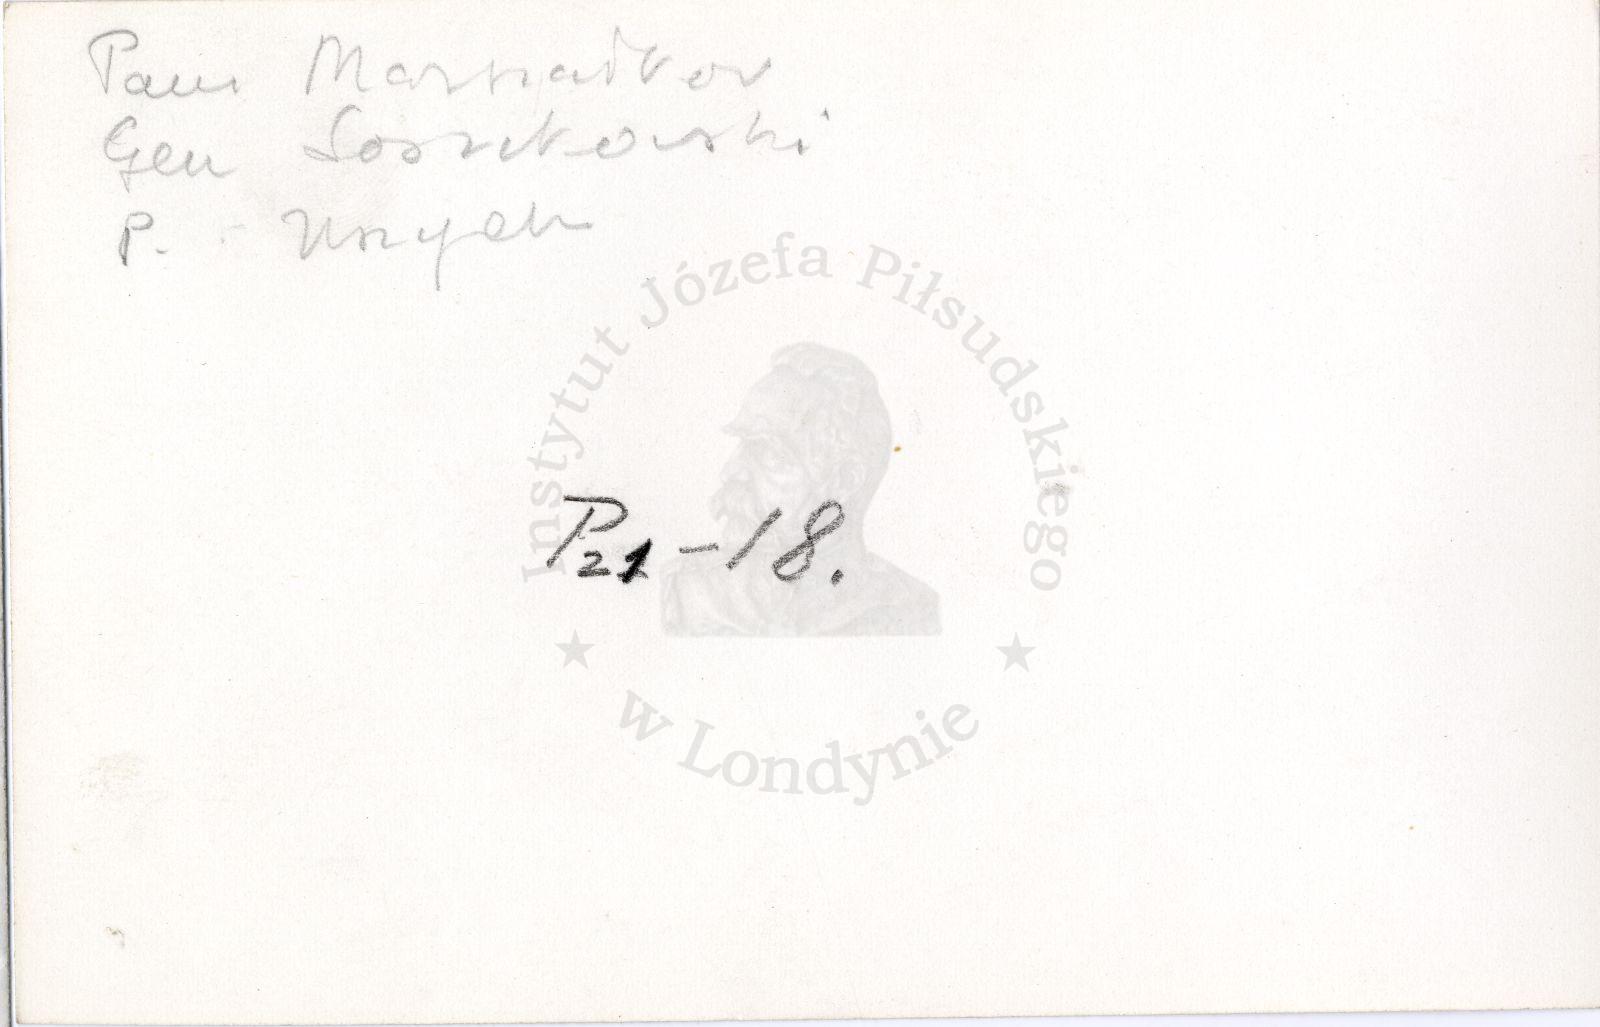 Pani Marszałkow
Gen Sosnkowski
P. -
Instytut Józefa Piłsudskiego
P21 - 18.
w Londynie